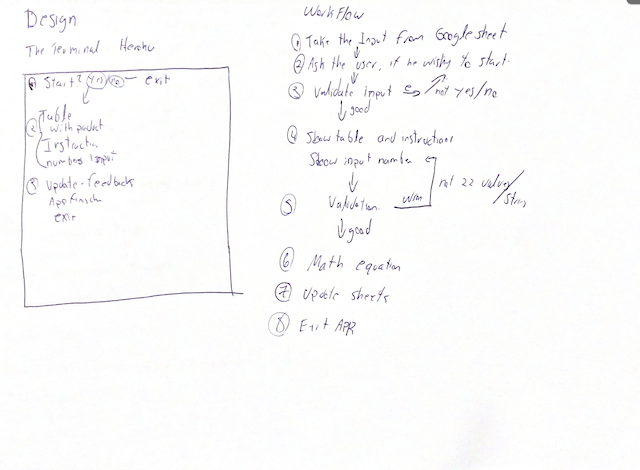 Design
The Terminal Heroku
① Start? Yes No - exit
② Table
With product
Instruction
numbers input
③ Update-feedbacks
App finish
exit
WorkFlow
① Take the Input from Google sheet
② Ask the user, if he wishy to start.
③ Validate input not yes/no
good
④ Show table and instructions
Show input number
⑤ Validation. not 22 values/
String
good
⑥ Math equation
⑦ Update sheets
⑧ Exit APP